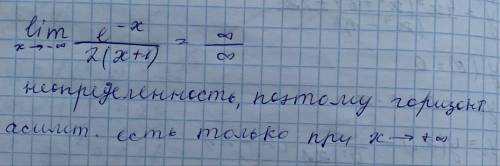 lim x→-∞ e^{-x} / 2(x+1) = ∞/∞
неопределенность, поэтому горизонт.
асимт. есть только при x→+∞